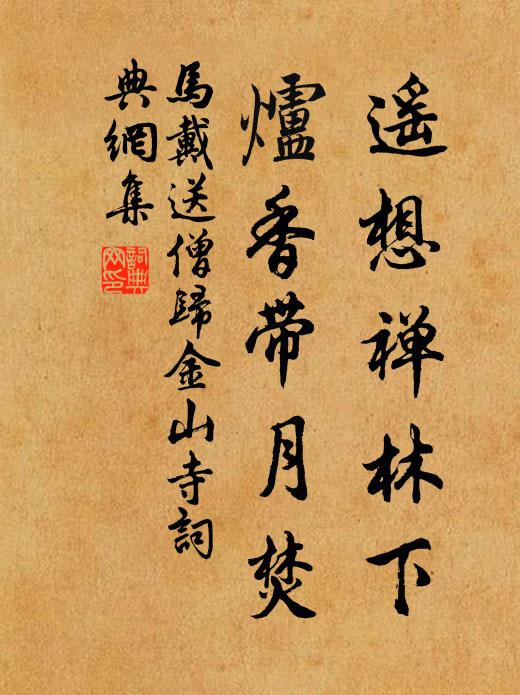 遥想禅林下
爐香带月焚
馬戴送僧歸金山寺詞
典網集
詞典
网印